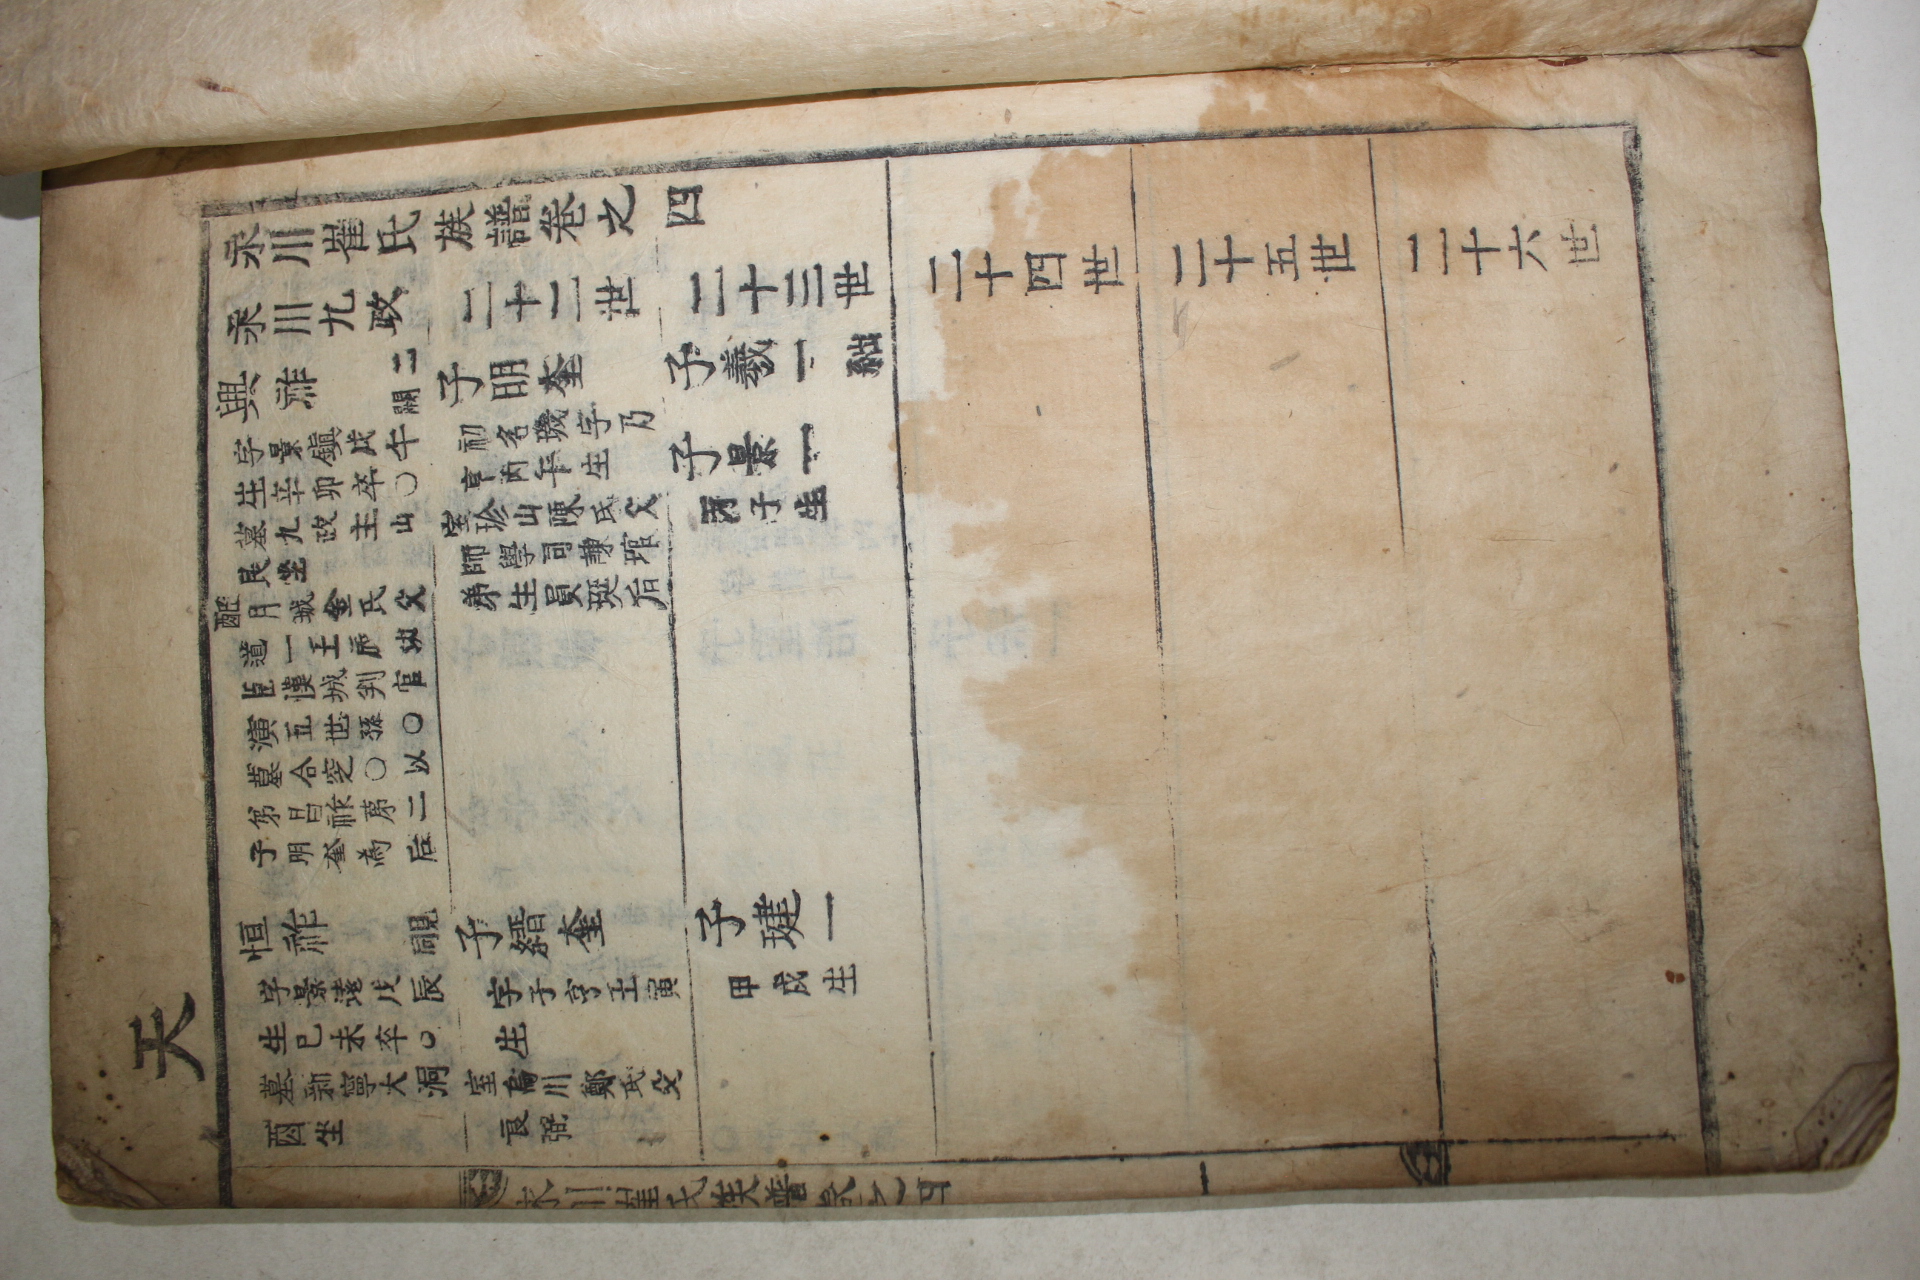 天
永川崔氏族譜卷之四
永川九政
二十二世
二十三世
二十四世
二十五世
二十六世
興祚
二
關
字景鎭戊午
生辛卯卒〇
墓九政主山
艮坐
配月城金氏父
道一王府幼
臣漢城判官
演五世孫〇
墓合窆〇以
弟昌祚第二
子明奎為后
子明奎
初名璣字乃
亨丙午生
室珍山陳氏父
師學司諫琯
弟生員珽后
子羲一
子景一
丙子生
恒祚
字景遠戊辰
生己未卒〇
墓新寧大洞
酉坐
子縉奎
字子亨壬寅
生
室烏川鄭氏父
良弼
子建一
甲戌生
永川崔氏族譜卷之四
一